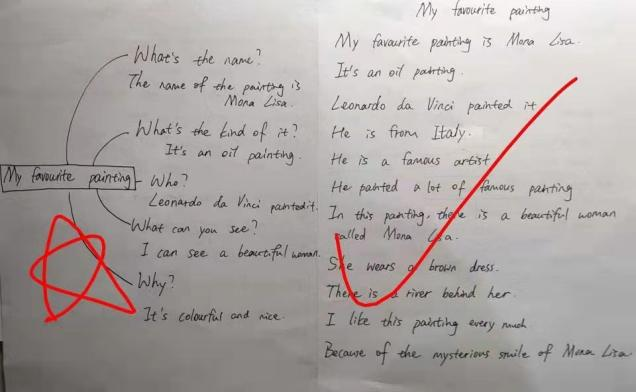 What's the name?
The name of the painting is
Mona Lisa.
What's the kind of it?
It's an oil painting.
My favourite painting
Who?
Leonardo da Vinci paintedit.
What can you see?
I can see a beautiful woman.
Why?
It's colourful and nice.
My favourite painting
My favourite painting is Mona Lisa.
It's an oil painting.
Leonardo da Vinci painted it
He is from Italy.
He is a famous artist
He painted a lot of famous painting
In this painting, there is a beautiful woman
called Mona Lisa.
She wears a brown dress.
There is a river behind her.
I like this painting every much.
Because of the mysterious smile of Mona Lisa